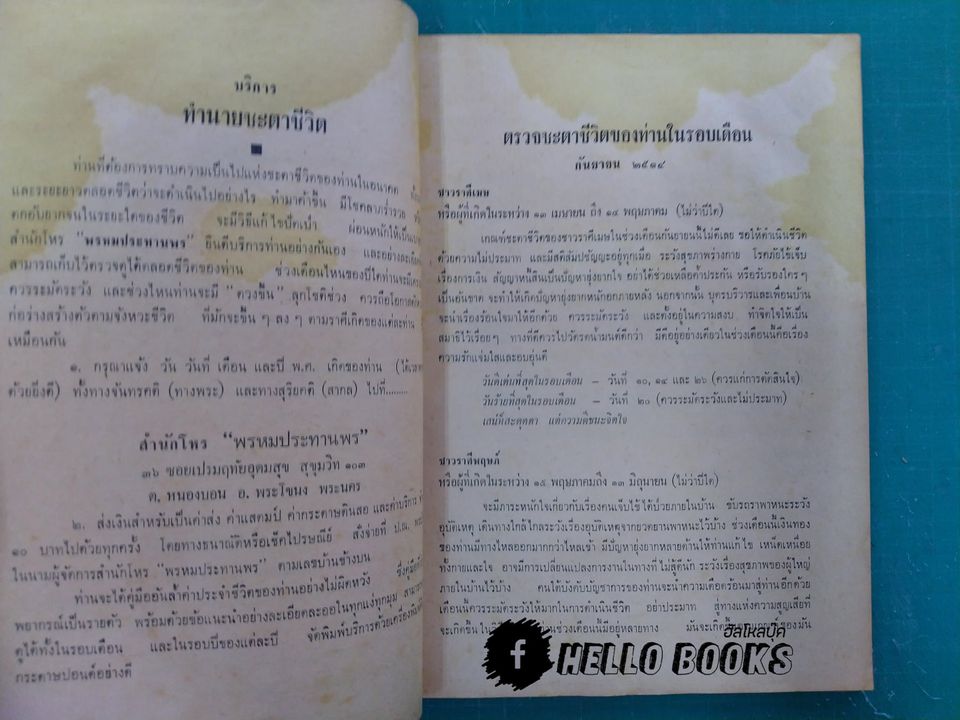 บริการ
ทำนายชะตาชีวิต
ท่านที่ต้องการทราบความเป็นไปแห่งชะตาชีวิตของท่านในอนาคต
และระยะยาวตลอดชีวิตว่าจะดำเนินไปอย่างไร ทำมาค้าขึ้น มีโชคลาภร่ำรวย
ตกอับยากจนในระยะใดของชีวิต จะมีวิธีแก้ไขปัดเป่า ผ่อนหนักให้เป็นเบา
สำนักโหร "พรหมประทานพร" ยินดีบริการท่านอย่างกันเอง และอย่างละเอียด
สามารถเก็บไว้ตรวจดูได้ตลอดชีวิตของท่าน ช่วงเดือนไหนของปีใดท่านจะมี
ควรระมัดระวัง และช่วงไหนท่านจะมี "ดวงขึ้น" ลุกโชติช่วง ควรถือโอกาส
ก่อร่างสร้างตัวตามจังหวะชีวิต ที่มักจะขึ้น ๆ ลง ๆ ตามราศีเกิดของแต่ละท่าน
เหมือนกัน
๑. กรุณาแจ้ง วัน วันที่ เดือน และปี พ.ศ. เกิดของท่าน (ได้เวลา
ด้วยยิ่งดี) ทั้งทางจันทรคติ (ทางพระ) และทางสุริยคติ (สากล) ไปที่........
สำนักโหร "พรหมประทานพร"
๓๖ ซอยเปรมฤทัยอุดมสุข สุขุมวิท ๑๐๓
ต. หนองบอน อ. พระโขนง พระนคร
๒. ส่งเงินสำหรับเป็นค่าส่ง ค่าแสตมป์ ค่ากระดาษดินสอ และค่าบริการ
๑๐ บาทไปด้วยทุกครั้ง โดยทางธนาณัติหรือเช็คไปรษณีย์ สั่งจ่ายที่ ป.ณ.
ในนามผู้จัดการสำนักโหร "พรหมประทานพร" ตามเลขบ้านข้างบน
ท่านจะได้คู่มืออันล้ำค่าประจำชีวิตของท่านอย่างไม่ผิดหวัง
พยากรณ์เป็นรายตัว พร้อมด้วยข้อแนะนำอย่างละเอียดละออในทุกแง่ทุกมุม
ดูได้ทั้งในรอบเดือน และในรอบปีของแต่ละปี จัดพิมพ์บริการด้วยเครื่อง
กระดาษปอนด์อย่างดี
ตรวจชะตาชีวิตของท่านในรอบเดือน
กันยายน ๒๕๑๔
ชาวราศีเมษ
หรือผู้ที่เกิดในระหว่าง ๑๓ เมษายน ถึง ๑๔ พฤษภาคม (ไม่ว่าปีใด)
เกณฑ์ชะตาชีวิตของชาวราศีเมษในช่วงเดือนกันยายนนี้ไม่ดีเลย ขอให้ดำเนินชีวิต
ด้วยความไม่ประมาท และมีสติสัมปชัญญะอยู่ทุกเมื่อ ระวังสุขภาพร่างกาย โรคภัยไข้เจ็บ
เรื่องการเงิน สัญญาหนี้สินเป็นปัญหายุ่งยากใจ อย่าได้ช่วยเหลือค้ำประกัน หรือรับรองใคร ๆ
เป็นอันขาด จะทำให้เกิดปัญหายุ่งยากหนักอกภายหลัง นอกจากนั้น บุตรบริวารและเพื่อนบ้าน
จะนำเรื่องร้อนใจมาให้อีกด้วย ควรระมัดระวัง และตั้งอยู่ในความสงบ ทำจิตใจให้เป็น
สมาธิไว้เรื่อยๆ ทางที่ดีควรไปวัดรดน้ำมนต์ดีกว่า มีดีอยู่อย่างเดียวในช่วงเดือนนี้คือเรื่อง
ความรักแจ่มใสและอบอุ่นดี
วันดีเด่นที่สุดในรอบเดือน – วันที่ ๑๐, ๑๔ และ ๒๖ (ควรแก่การตัดสินใจ)
วันร้ายที่สุดในรอบเดือน – วันที่ ๒๐ (ควรระมัดระวังและไม่ประมาท)
เสน่ห์สะดุดตา แต่ความดีชนะจิตใจ
ชาวราศีพฤษภ์
หรือผู้ที่เกิดในระหว่าง ๑๕ พฤษภาคมถึง ๑๓ มิถุนายน (ไม่ว่าปีใด)
จะมีภาระหนักใจเกี่ยวกับเรื่องคนเจ็บไข้ได้ป่วยภายในบ้าน ขับรถราพาหนะระวัง
อุบัติเหตุ เดินทางใกล้ไกลระวังเรื่องอุบัติเหตุจากยวดยานพาหนะไว้บ้าง ช่วงเดือนนี้เงินทอง
ของท่านมีทางไหลออกมากกว่าไหลเข้า มีปัญหายุ่งยากหลายด้านให้ท่านแก้ไข เหน็ดเหนื่อย
ทั้งกายและใจ อาจมีการเปลี่ยนแปลงการงานในทางที่ไม่สู้ดีนัก ระวังเรื่องสุขภาพของผู้ใหญ่
ภายในบ้านไว้บ้าง คนใต้บังคับบัญชาของท่านจะนำความเดือดร้อนมาสู่ท่านอีกด้วย
เดือนนี้ควรระมัดระวังให้มากในการดำเนินชีวิต อย่าประมาท สู่ทางแห่งความสูญเสียที่
จะเกิดขึ้น ในช่วงเดือนนี้มีอยู่หลายทาง มันจะเกิดขึ้น
ฮัลโหลบุ๊ค
f HELLO BOOKS